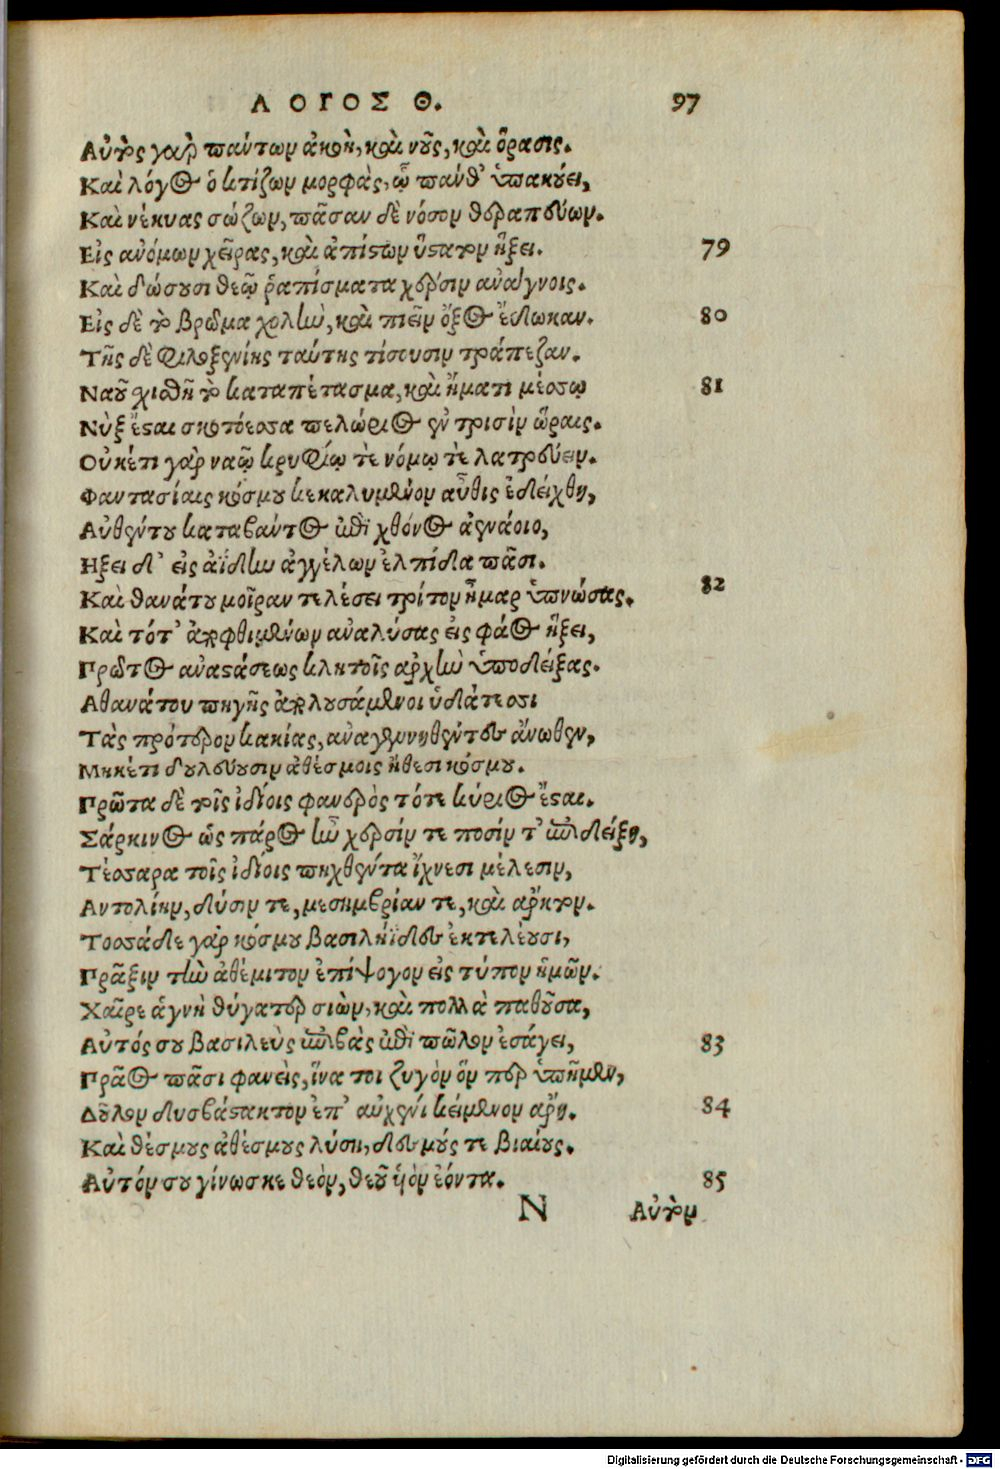 ΛΟΓΟΣ Θ. 97
Αὐτὸς γὰρ πάντων ἀκοὴ, καὶ νοῦς, καὶ ὅρασις.
Καὶ λόγος ὁ κτίζων μορφὰς, ᾧ πάνθ' ὑπακούει,
Καὶ νέκυας σώζων, πᾶσαν δὲ νόσον θεραπεύων.
Εἰς ἀνόμων χεῖρας, καὶ ἀπίστων ὕστατον ἥξει. 79
Καὶ δώσουσι θεῷ ῥαπίσματα χερσὶν ἀνάγνοις.
Εἰς δὲ τὸ βρῶμα χολὴν, καὶ πιεῖν ὄξος ἔδωκαν. 80
Τῆς δὲ φιλοξενίης ταύτης τίσουσιν τράπεζαν.
Ναοῦ χισθῆ τὸ καταπέτασμα, καὶ ἤματι μέσσῳ 81
Νὺξ ἔσται σκοτόεσσα πελώριος ἐν τρισὶν ὥραις.
Οὐκέτι γὰρ ναῷ κρυφίῳ τὲ νόμῳ τὲ λατρεύειν.
Φαντασίαις κόσμου κεκαλυμμένον αὖθις ἐδείχθη,
Αὐθέντου καταβάντος ἐπὶ χθόνος ἀενάοιο,
Ηξει δ' εἰς ἀΐδην ἀγγέλων ἐλπίδα πᾶσι.
Καὶ θανάτου μοῖραν τελέσει τρίτον ἦμαρ ὑπνώσας. 82
Καὶ τότ' ἀποφθιμένων ἀναλύσας εἰς φάος ἥξει,
Πρῶτος ἀναστάσεως κλητοῖς ἀρχὴν ὑποδείξας.
Αθανάτου πηγῆς ἀπολουσάμενοι ὑδάτεσσι
Τὰς πρότερον κακίας, ἀναγεννηθέντες ἄνωθεν,
Μηκέτι δουλεύουσιν ἀθέσμοις ἤθεσι κόσμου.
Πρῶτα δὲ τοῖς ἰδίοις φανερὸς τότε κύριος ἔσται.
Σάρκινος ὡς πάρος ἦν χερσίν τε ποσίν τ' ἐπιδείξῃ,
Τέσσαρα τοῖς ἰδίοις πηχθέντα ἴχνεσι μέλεσιν,
Αντολίην, δύσιν τε, μεσημβρίαν τε, καὶ ἄρκτον.
Τοσσάδε γὰρ κόσμου βασιληΐδες ἐκτελέουσι,
Πρᾶξιν τὴν ἀθέμιτον ἐπίψογον εἰς τύπον ἡμῶν.
Χαῖρε ἁγνὴ θύγατερ σιὼν, καὶ πολλὰ παθοῦσα,
Αὐτός σου βασιλεὺς ἐπιβὰς ἐπὶ πῶλον ἐσάγει, 83
Πρᾶος πᾶσι φανεὶς, ἵνα τοι ζυγὸν ὅν περ ὑπῆμεν,
Δοῦλον δυσβάστακτον ἐπ' αὐχένι κείμενον ἄρῃ. 84
Καὶ θέσμους ἀθέσμους λύσῃ, δεσμούς τε βιαίους.
Αὐτόν σου γίνωσκε θεὸν, θεοῦ ὑὸν ἐόντα. 85
N Αὐτὸν
Digitalisierung gefördert durch die Deutsche Forschungsgemeinschaft - DFG